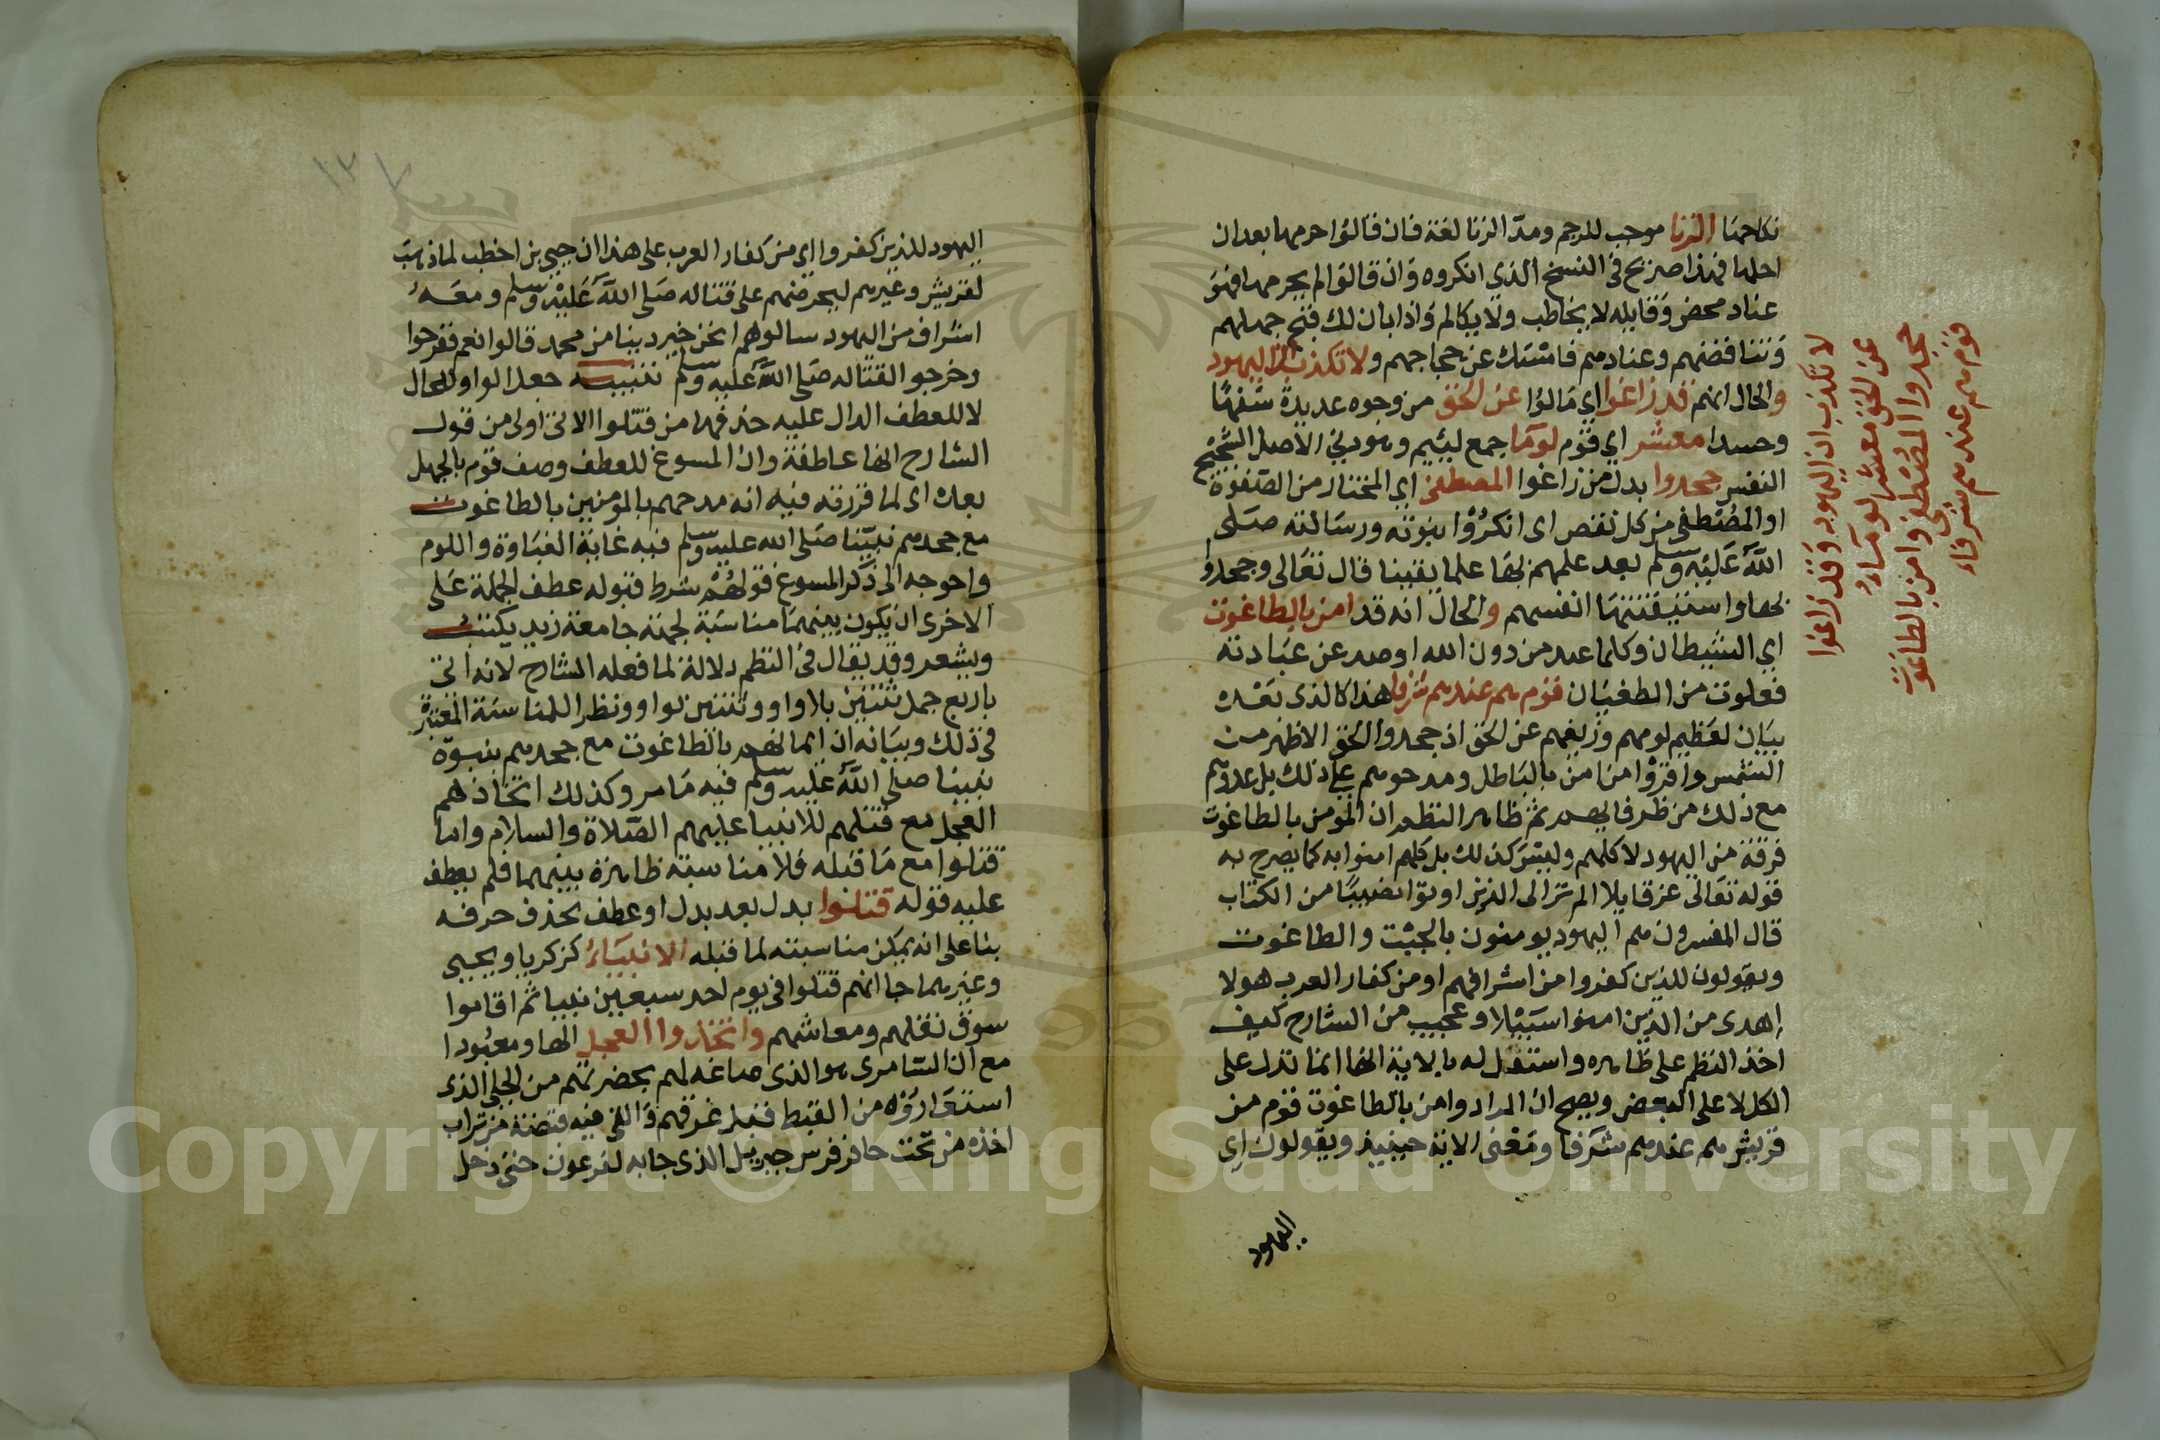 نكاحها الزنا موجب للرجم ومدّ الزنا لغة فان قالوا حرمها بعد ان
احلها فهذا صريح في النسخ الذي انكروه وان قالوا لم يحرمها فهو
عناد محض وقايله لا يخاطب ولا يكالم واذا بان لك قبح جهلهم
وتناقضهم وعنادهم فامسك عن حجاجهم ولا تكذب ان اليهود
والحال انهم قد زاغوا اي مالوا عن الحق من وجوه عديدة سفها
وحسدا معشر اي قوم لوما جمع لييم وهو دني الاصل الشحيح
النفس جحدوا بدل من زاغوا المصطفى اي المختار من الصفوة
او المصطفى من كل نقص اي انكروا نبوته ورسالته صلى
الله عليه وسلم بعد علمهم بها علما يقينا قال تعالى وجحدوا
بها واستيقنتها انفسهم والحال انه قد امن بالطاغوت
اي الشيطان وكلما عبد من دون الله او صد عن عبادته
فعلوت من الطغيان قوم هم عندهم شرفا هذا كالذي بعده
بيان لعظيم لومهم وزيغهم عن الحق اذ جحدوا الحق الاظهر من
الشمس واقروا من امن بالباطل ومدحوهم على ذلك بل عدوهم
مع ذلك من ظرفايهم ثم ظاهر النظم ان المومن بالطاغوت
فرقة من اليهود لا كلهم وليس كذلك بل كلهم امنوا به كما يصرح به
قوله تعالى عز قايلا الم تر الى الذين اوتوا نصيبا من الكتاب
قال المفسرون هم اليهود يومنون بالجبت والطاغوت
ويقولون للذين كفروا من اشرافهم او من كفار العرب هولا
اهدى من الذين امنوا سبيلا وعجيب من الشارح كيف
اخذ النظم على ظاهره واستدل له بالاية مع انها انما تدل على
الكل لا على البعض ويصح ان المراد وامن بالطاغوت قوم من
قريش هم عندهم شرفا ومعنى الاية حينيذ ويقولون اي
اليهود
لا تكذب ان اليهود وقد زاغوا
عن الحق معشر لوماء
جحدوا المصطفى وامن بالطاغوت
قوم هم عندهم شرفاء
١٣
اليهود للذين كفروا اي من كفار العرب على هذا ان حيي بن اخطب لما ذهب
لقريش وغيرهم ليحرضهم على قتاله صلى الله عليه وسلم ومعه
اشراف من اليهود سالوهم انحن خير دينا من محمد قالوا نعم ففرحوا
وخرجوا لقتاله صلى الله عليه وسلم تنبيه جعل الواو للحال
لا للعطف الدال عليه حذفها من قتلوا الاتي اولى من قول
الشارح انها عاطفة وان المسوغ للعطف وصف قوم بالجهل
بعده اي لما قررته فيه انه مدحهم بالمومنين بالطاغوت
مع جحدهم نبينا صلى الله عليه وسلم فيه غاية الغباوة واللوم
واحوجه الى ذكر المسوغ قولهم شرط قبوله عطف الجملة على
الاخرى ان يكون بينهما مناسبة لجهة جامعة نحو زيد يكتب
ويشعر وقد يقال في النظم دلالة لما فعله الشارح لانه اتى
باربع جمل ثنتين بلا واو وثنتين بواو ونظر للمناسبة المعتبرة
في ذلك وبيانه ان ايمانهم بالطاغوت مع جحدهم بنبوة
نبينا صلى الله عليه وسلم فيه ما مر وكذلك اتخاذهم
العجل مع قتلهم للانبيا عليهم الصلاة والسلام واما
قتلوا مع ما قبله فلا مناسبة ظاهرة بينهما فلم يعطف
عليه قوله قتلوا بدل بعد بدل او عطف بحذف حرفه
بنا على انه يمكن مناسبته لما قبله الانبياء كزكريا ويحيى
وغيرهما جا انهم قتلوا في يوم احد سبعين نبيا ثم اقاموا
سوق نقلهم ومعاشهم واتخذوا العجل الها ومعبودا
مع ان السامري هو الذي صاغه لهم بحضرتهم من الحلي الذي
استعاروه من القبط قبل غرقهم والقى فيه قبضة من تراب
اخذه من تحت حافر فرس جبريل الذي جا به لفرعون حتى دخل
Copyright © King Saud University